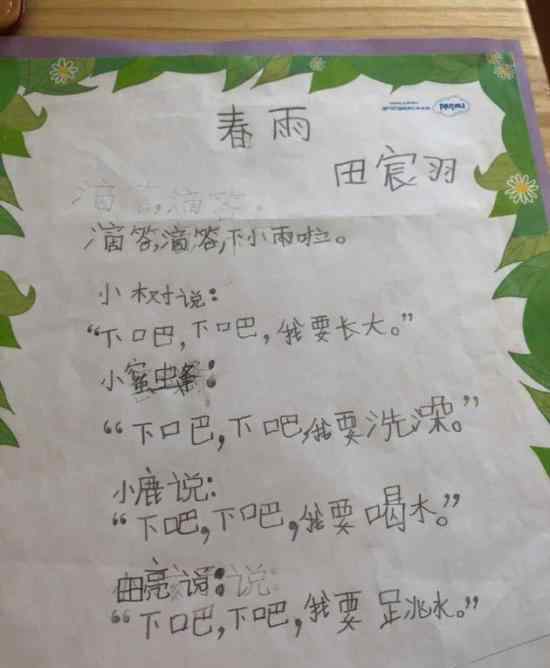 春雨
田宸羽
滴答,滴答。
滴答,滴答,下小雨啦。
小树说:
“下吧,下吧,我要长大。”
小蜜虫:
“下吧,下吧,我要洗澡。”
小鹿说:
“下吧,下吧,我要喝水。”
田亮说:说:
“下吧,下吧,我要跳水。”